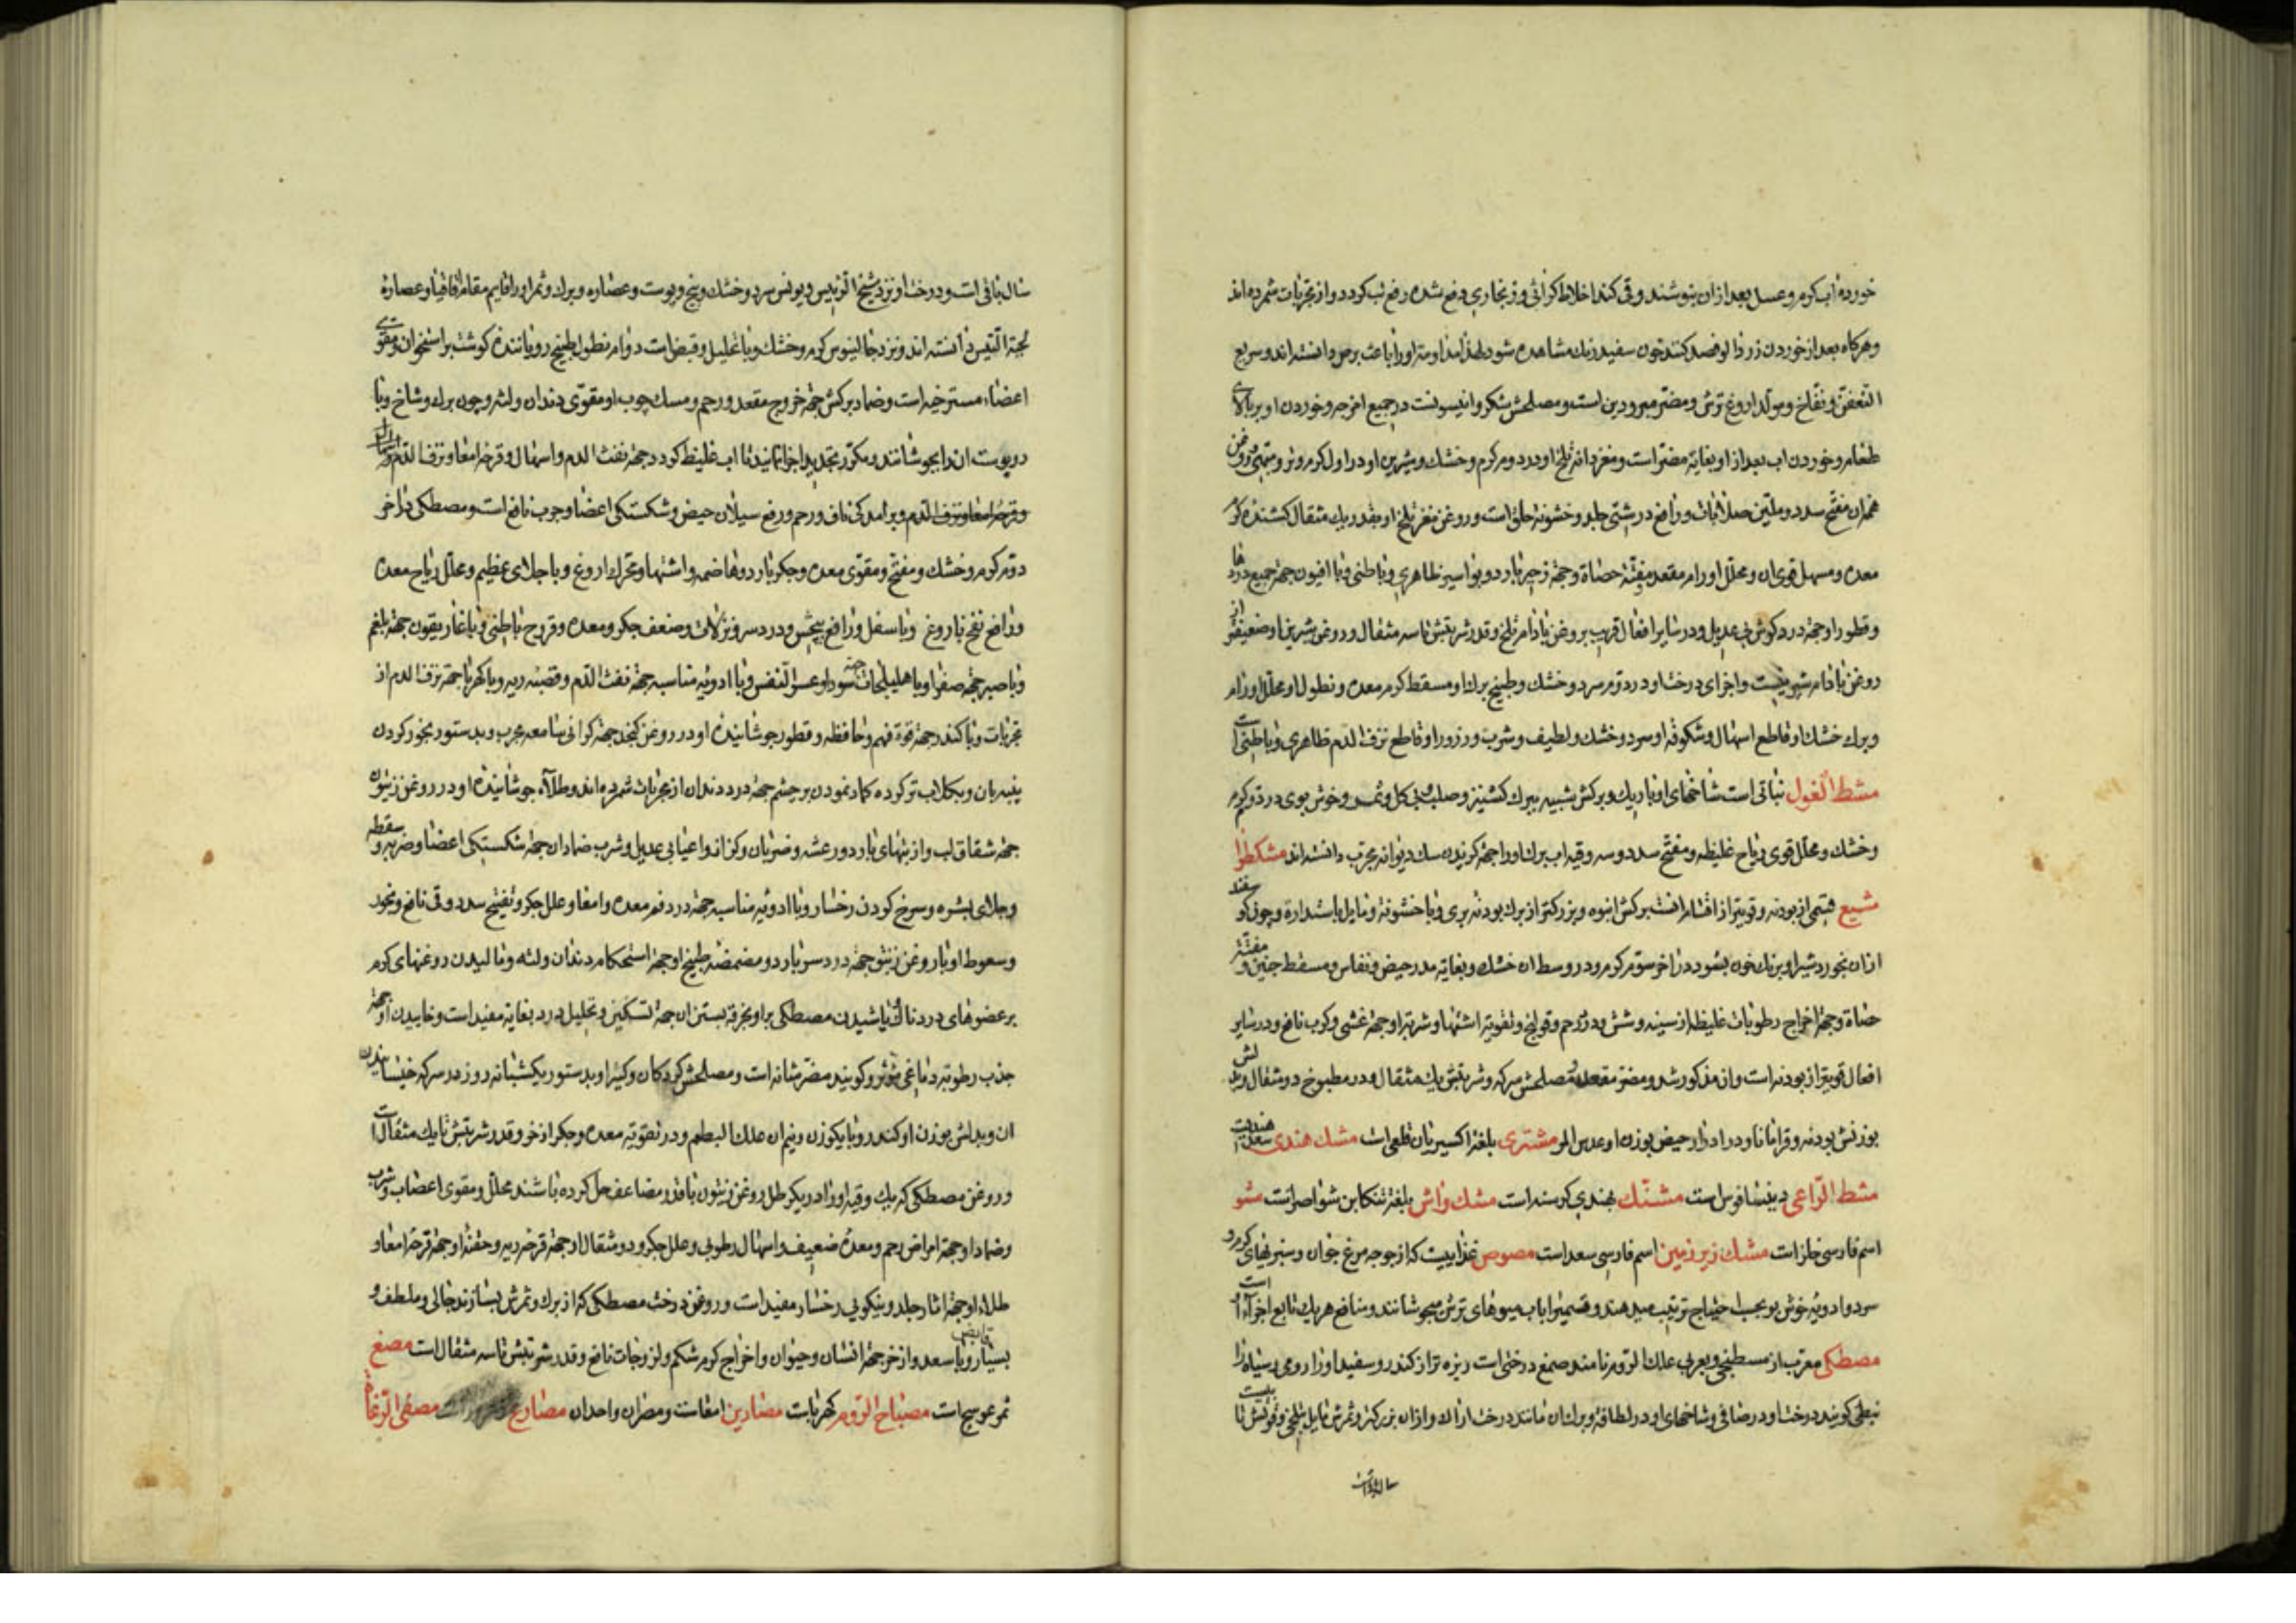 خورده آب کرم و عسل بعد از ان بنوشند و قی کنند اخلاط کراثی و زنجاری دفع شده رفع تب کردد و از مجربات شمرده اند
و هرکاه بعد از خوردن زردالو فصد کنند خون سفید رنک مشاهده شود لهذا مداومت او را باعث برص دانسته اند و سریع
التعفن و نفاخ و مولد اروغ ترش و مضر مبرودین است و مصلحش شکر و انیسونست در جمیع امزجه و خوردن او بر بالای
طعام و خوردن اب بعد از او بغایة مضر است و مغز دانه تلخ او در دوم کرم و خشک و شیرین او در اول کرم و تر و مبهی و روغن
همه ان مفتح سدد و ملین صلابات و رافع درشتی جلد و خشونة حلق است و روغن مغز تلخ او بقدر یک مثقال کشنده کرم
معده و مسهل قوی ان و محلل اورام مقعد و مفتت حصاة و جهة زحیر بارد و بواسیر ظاهری و باطنی و با افیون جهة جمیع دردها
و قطور او جهة درد کوش بی عدیل و در سایر افعال قریب بروغن بادام تلخ و قدر شربتش تا سه مثقال و روغن شیرین او ضعیفتر از
روغن بادام شیرینست و اجزای درخت او در دوم سرد و خشک و طبیخ برک او مسقط کرم معده و نطول او محلل اورام
و برک خشک او قاطع اسهال و شکوفه او سرد و خشک و لطیف و شرب و ذرور او قاطع نزف الدم ظاهری و باطنی است
مشط الغول نباتی است شاخهای او باریک و برکش شبیه ببرک کشنیز و صلب و بی کل و ثمر و خوش بوی در دوم کرم
و خشک و محلل قوی ریاح غلیظه و مفتح سدد و سه وقیه اب برک او را جهة کزیدن سک دیوانه مجرب دانسته اند مشکطرا
مشیع قسمی از پودنه و قویتر از اقسام انست برکش انبوه و بزرکتر از برک پودنه بری و با خشونة و مایل باستدارة و چون کوسفند
ازان بخورد شیر او برنک خون بشود در اخر سوم کرم و در وسط ان خشک و بغایة مدر حیض و نفاس و مسقط جنین و مفتت
حصاة و جهة اخراج رطوبات غلیظه از سینه و شش و درد رحم و قولنج و تقویة اشتها و شربة او جهة غشی و کرب نافع و در سایر
افعال قویتر از پودنه است و از مذکور شد و مضر مقعده و مصلحش سرکه و شربتش یک مثقال و در مطبوخ دو مثقال و بدلش
بوزنش پودنه و قرامانا و در ادرار حیض بوزن او عدس المر مشتری بلغة اکسیریان قلعی است مشک هندی سعد هندیست
مشط الراعی دینسافوس است مشنک بهندی کرسنه است مشک واش بلغة تنکابن شواصرا نست مشو
اسم فارسی خلز است مشک زیر زمین اسم فارسی سعد است مصوص غذاییست که از جوجه مرغ جوان و سبزیهای کرم و
سرد و ادویه خوش بو بحسب احتیاج ترتیب میدهند و قسمی را با اب میوهای ترش میجوشانند و منافع هر یک تابع اجزاء است
مصطکی معرب از مسطیخی و بعربی علک الروم نامند صمغ درختی است ریزه تر از کندر و سفید او را رومی و سیاه را
نبطی کویند درخت او در صافی و شاخهای او در لطافة و برک ان مانند درخت اراک و ازان بزرکتر و ثمرش مایل بتلخی و قوتش تا بیست
سال باقی است و درخت او نزد شیخ الرئیس و یونس سرد و خشک و بیخ و پوست و عصاره و برک و ثمر او را قایم مقام اقاقیا و عصاره
لحیة التیس دانسته اند و نزد جالینوس کرم و خشک و با تحلیل و قبض است دوام نطول طبیخ رویاننده کوشت بر استخوان و مقوی
اعضاء مسترخیه است و ضماد برکش جهة خروج مقعد و رحم و مسک چوب او مقوی دندان و لثه و چون برک و شاخ و با
و پوست ان را بجوشانند و مکرر تجدید اجزا نمایند تا اب غلیظ کردد جهة نفث الدم و اسهال و قرحه امعا و نزف الدم
و قرحه امعا و نزف الدم و برامدکی ناف و رحم و رفع سیلان حیض و شکستکی اعضا و جرب نافع است و مصطکی در اخر
دوم کرم و خشک و مفتح و مقوی معده و جکر بارد و هاضمه و اشتها و محرک اروغ و با جلای عظیم و محلل ریاح معده
و رافع نفخ با روغ و با سفل و رافع پیچش و درد سر و نزلات و ضعف جکر و معده و قروح باطنی و با غاریقون جهة بلغم
و با صبر جهة صفرا و با هلیلجات جهة سودا و عسر النفس و با ادویه مناسبه جهة نفث الدم و قصبه ریه و با کهربا جهة نزف الدم از
مجربات و با کندر جهة قوة فهم و حافظه و قطور جوشانیده او در روغن کنجد جهة کرانی سامعه مجرب و بدستور بخور کردن
پنبه بان و بکلاب تر کرده کماد نمودن بر چشم جهة درد دندان از مجربات شمرده اند و طلاء جوشانیده او در روغن زیتون
جهة شقاق لب و از تبهای بارد و رعشه و ضربان و کزاز و اعیا بی عدیل و شرب ضماد ان جهة شکستکی اعضا و ضربه و سقطه
و جلای بشره و سرخ کردن رخسار و با ادویه مناسبه جهة درد فم معده و امعا و علل جکر و تفتیح سدد و قی نافع و بخور
و سعوط او با روغن زنبق جهة درد سر بارد و مضمضه طبیخ او جهة استحکام دندان و لثه و مالیدن روغنهای کرم
بر عضوهای دردناک و پاشیدن مصطکی بر او بخرقه بستن ان جهة تسکین و تحلیل درد بغایة مفید است و خاییدن او جهة
جذب رطوبة دماغی موثر و کویند مضر مثانه است و مصلحش کردکان و کتیرا و بدستور یکشبانه روز در سرکه خیسانیدن
ان و بدلش بوزن او کندر و با یکوزن و نیم ان علک البطم و در تقویة معده و جکر اذخر و قدر شربتش تا یک مثقال است
و روغن مصطکی که یک وقیه او را در یکرطل روغن زیتون باقدر مضاعف حل کرده باشند محلل و مقوی اعصاب و شرب
و ضماد او جهة امراض رحم و معده ضعیف و اسهال رطوبی و علل جکر و دو مثقال او جهة قرحه ریه و حقنه او جهة قرحه امعا و
طلاء او جهة اثار جلد و نیکویی رخسار مفید است و روغن درخت مصطکی که از برک و ثمرش بسازند جالی و ملطف و
بسیار قابض و با سعد و اذخر جهة انسان و حیوان و اخراج کرم شکم و لزوجات نافع و قدر شربتش تا سه مثقال است مصع
ثمر عوسج است مصباح الروم کهرباست مصارین امعاست و مصران واحد ان مصاریع مصفی الرعاة